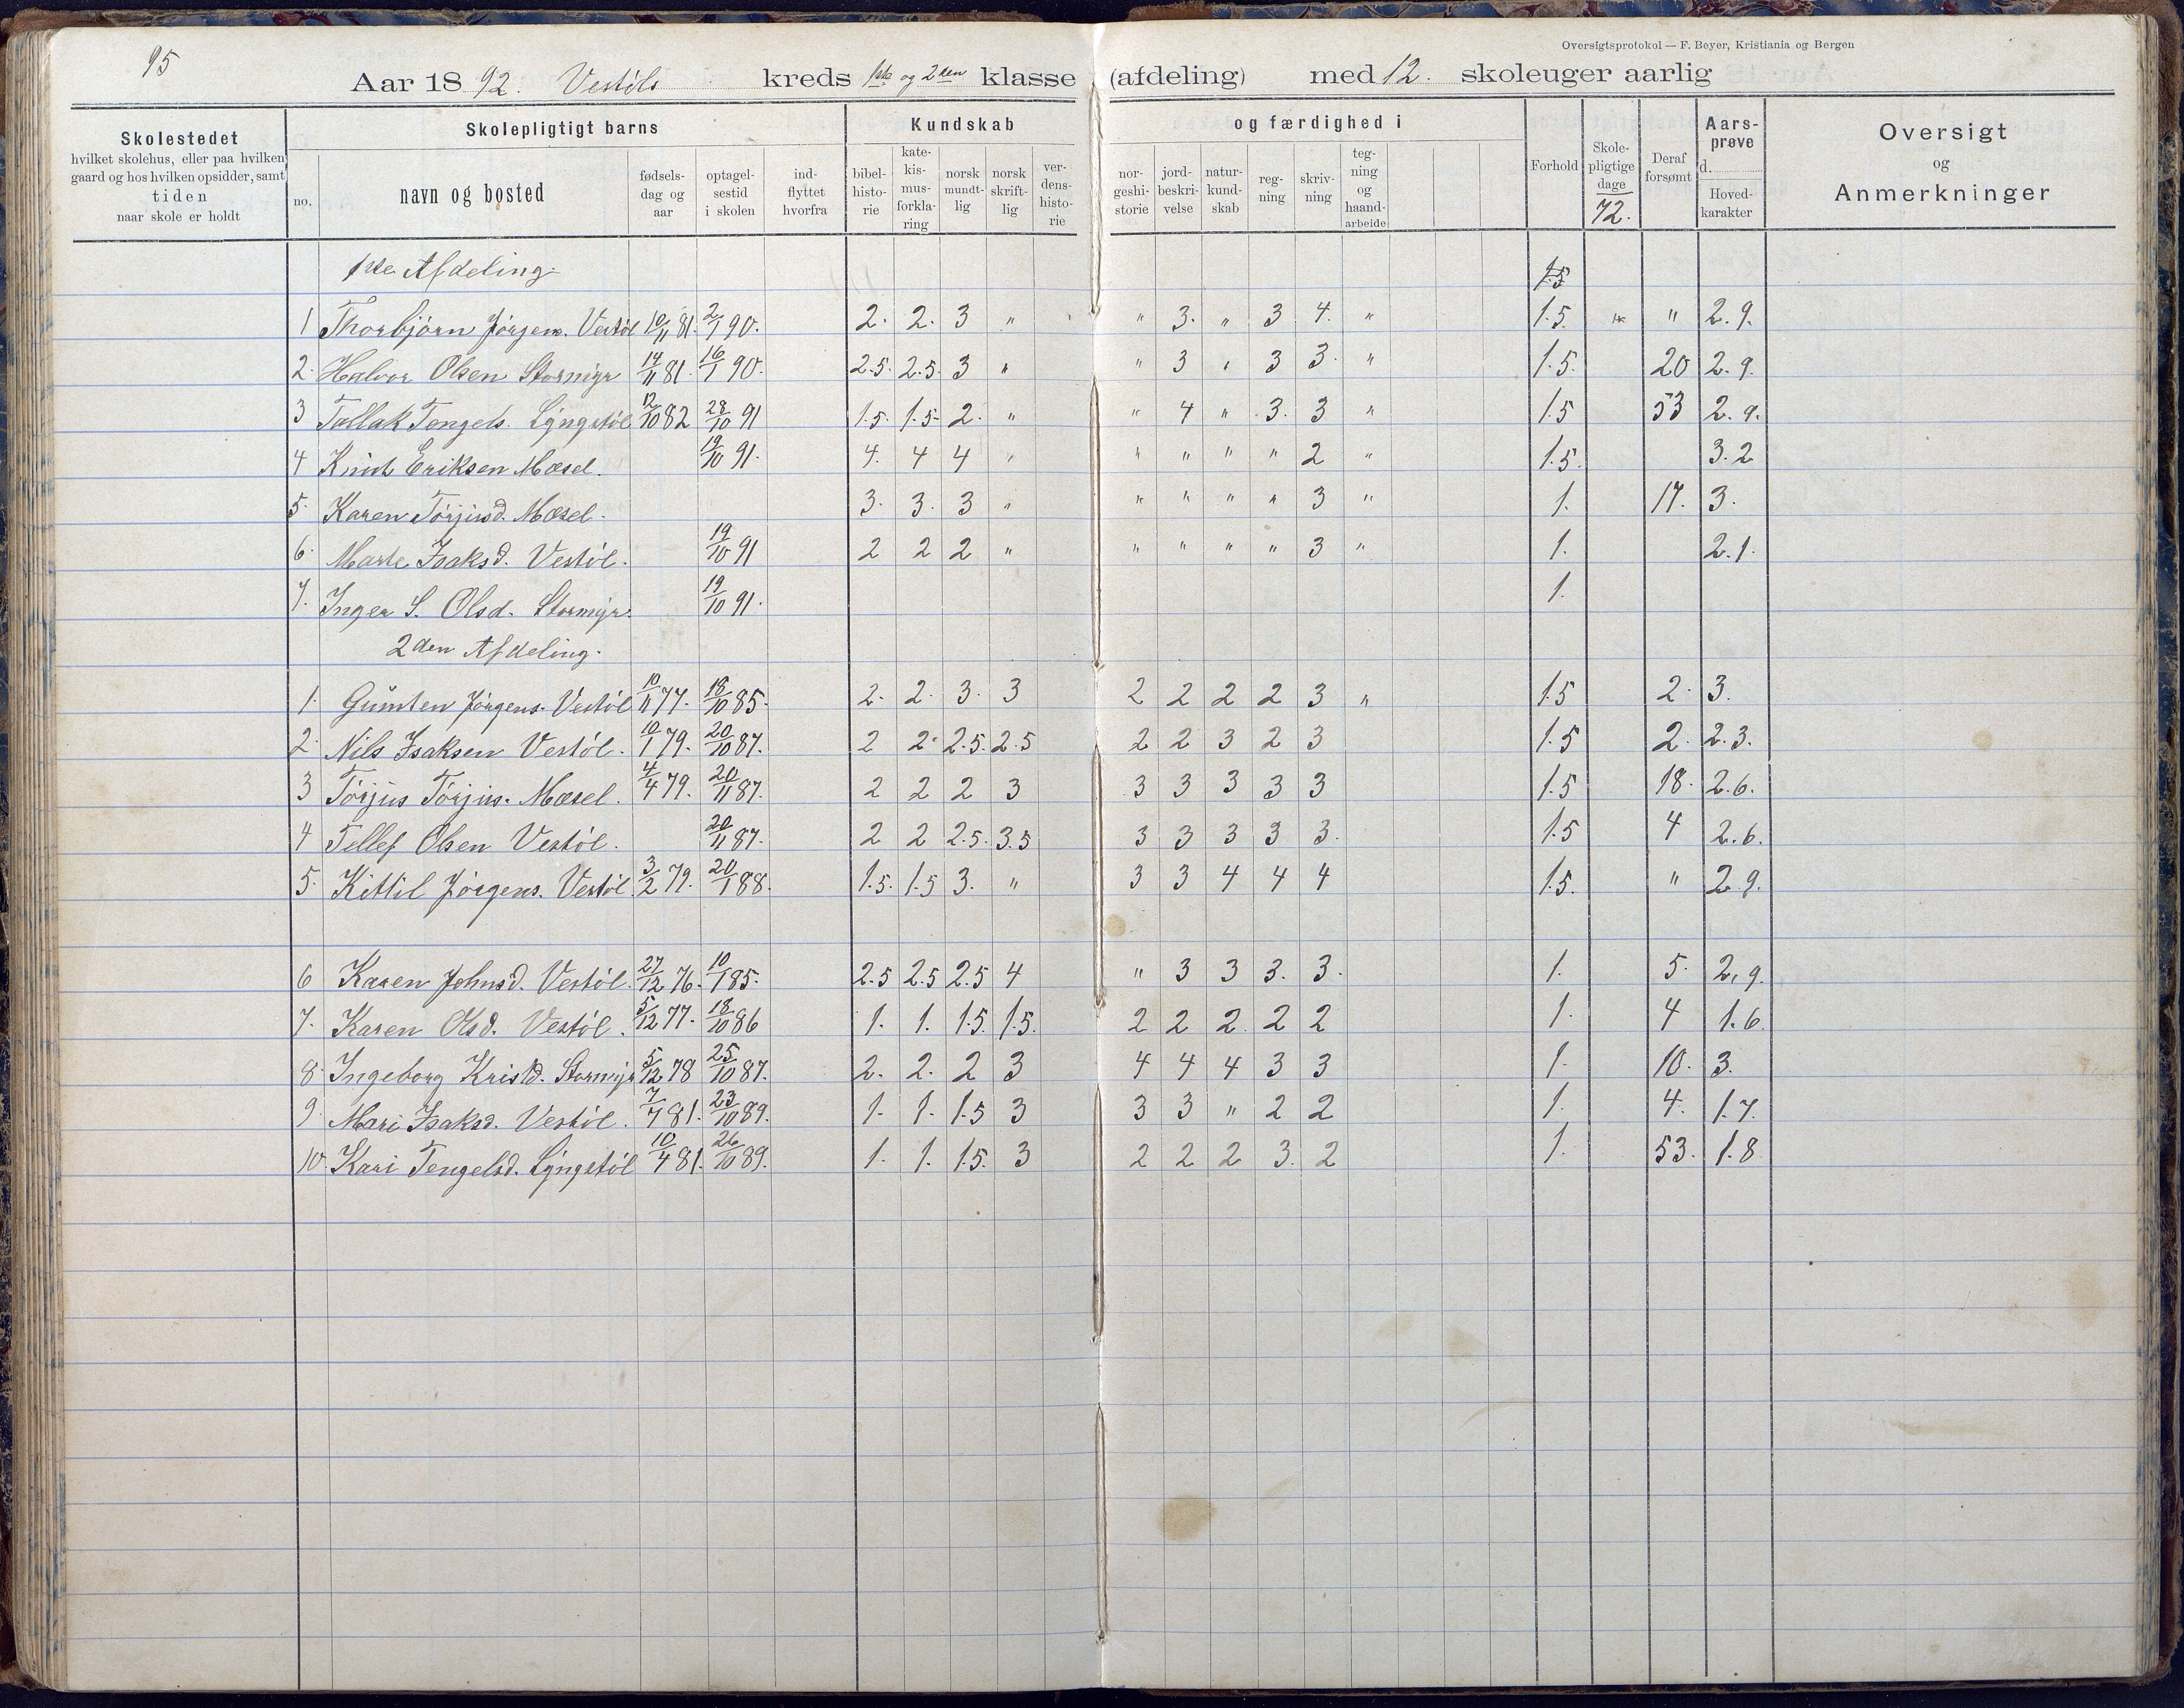 95
Oversigtsprotokol — F. Beyer, Kristiania og Bergen
Aar 18 92. Vestöls kreds 1ste og 2den klasse (afdeling) med 12. skoleuger aarlig
Skolestedet hvilket skolehus, eller paa hvilken gaard og hos hvilken opsidder, samt tiden naar skole er holdt
Skolepligtigt barns
no. navn og bosted fødselsdag og aar optagelsestid i skolen indflyttet hvorfra
Kundskab og færdighed i
bibelhistorie katekismusforklaring norsk mundtlig norsk skriftlig verdenshistorie norgeshistorie jordbeskrivelse naturkundskab regning skrivning tegning og haandarbeide
Forhold Skolepligtige dage 72. Deraf forsømt Aarsprøve d. Hovedkarakter
Oversigt og Anmerkninger
1ste Afdeling. 1.5
1 Thorbjörn Jörgens. Vestöl 10/11 81. 2/1 90. 2. 2. 3 " " 3. " 3 4. " 1.5. " " 2.9.
2. Halvor Olsen Stormyr 14/11 81. 16/1 90. 2.5. 2.5. 3 " " 3 " 3 3. " 1.5. 20 2.9.
3 Tallak Tengels. Lyngstöl 12/10 82 28/10 91 1.5. 1.5. 2. " " 4 " 3. 3 " 1.5 53 2.9.
4 Knut Eriksen Mæsel. 19/10 91. 4. 4 4 " " " " " 2 " 1.5. 3.2
5. Karen Törjusd. Mæsel. 3. 3. 3 " " " " " 3 " 1. 17. 3.
6. Marte Isaksd. Vestöl. 19/10 91 2 2 2 " " " " " 3 " 1. 2.1.
7. Inger S. Olsd. Stormyr. 19/10 91. 1.
2den Afdeling.
1. Gunsten Jörgens. Vestöl 10/11 77. 18/10 85. 2. 2. 3. 3 2 2 2 2 3 " 1.5 2. 3.
2. Nils Isaksen Vestöl. 10/1 79. 20/10 87. 2 2. 2.5. 2.5 2 2 3 2 3 1.5 2. 2.3.
3 Törjus Törjus. Mæsel. 4/4 79. 20/11 87. 2 2 2 3 3 3 3 3 3 1.5 18. 2.6.
4 Tellef Olsen Vestöl. 20/11 87. 2 2 2.5. 3.5 3 3 3 3 3. 1.5 4 2.6.
5. Kittil Jörgens. Vestöl. 3/2 79. 20/1 88. 1.5. 1.5 3. " 3 3 4 4 4 1.5. " 2.9.
6 Karen Johnsd. Vestöl. 27/12 76. 10/1 85. 2.5 2.5 2.5 4 " 3 3 3. 3. 1. 5. 2,9.
7. Karen Olsd. Vestöl. 5/12 77. 18/10 86 1. 1. 1.5. 1.5. 2 2 2. 2 2 1. 4 1.6.
8. Ingeborg Kristd. Stormyr 5/12 78 25/10 87. 2. 2. 2 3 4 4 4 3 3 1. 10. 3.
9. Mari Isaksd. Vestöl. 7/7 81. 23/10 89. 1. 1. 1.5 3 3 3 " 2 2 1. 4. 1.7.
10. Kari Tengelsd. Lyngstöl 10/4 81. 26/10 89. 1. 1. 1.5. 3 2 2 2 3. 2 1. 53. 1.8.